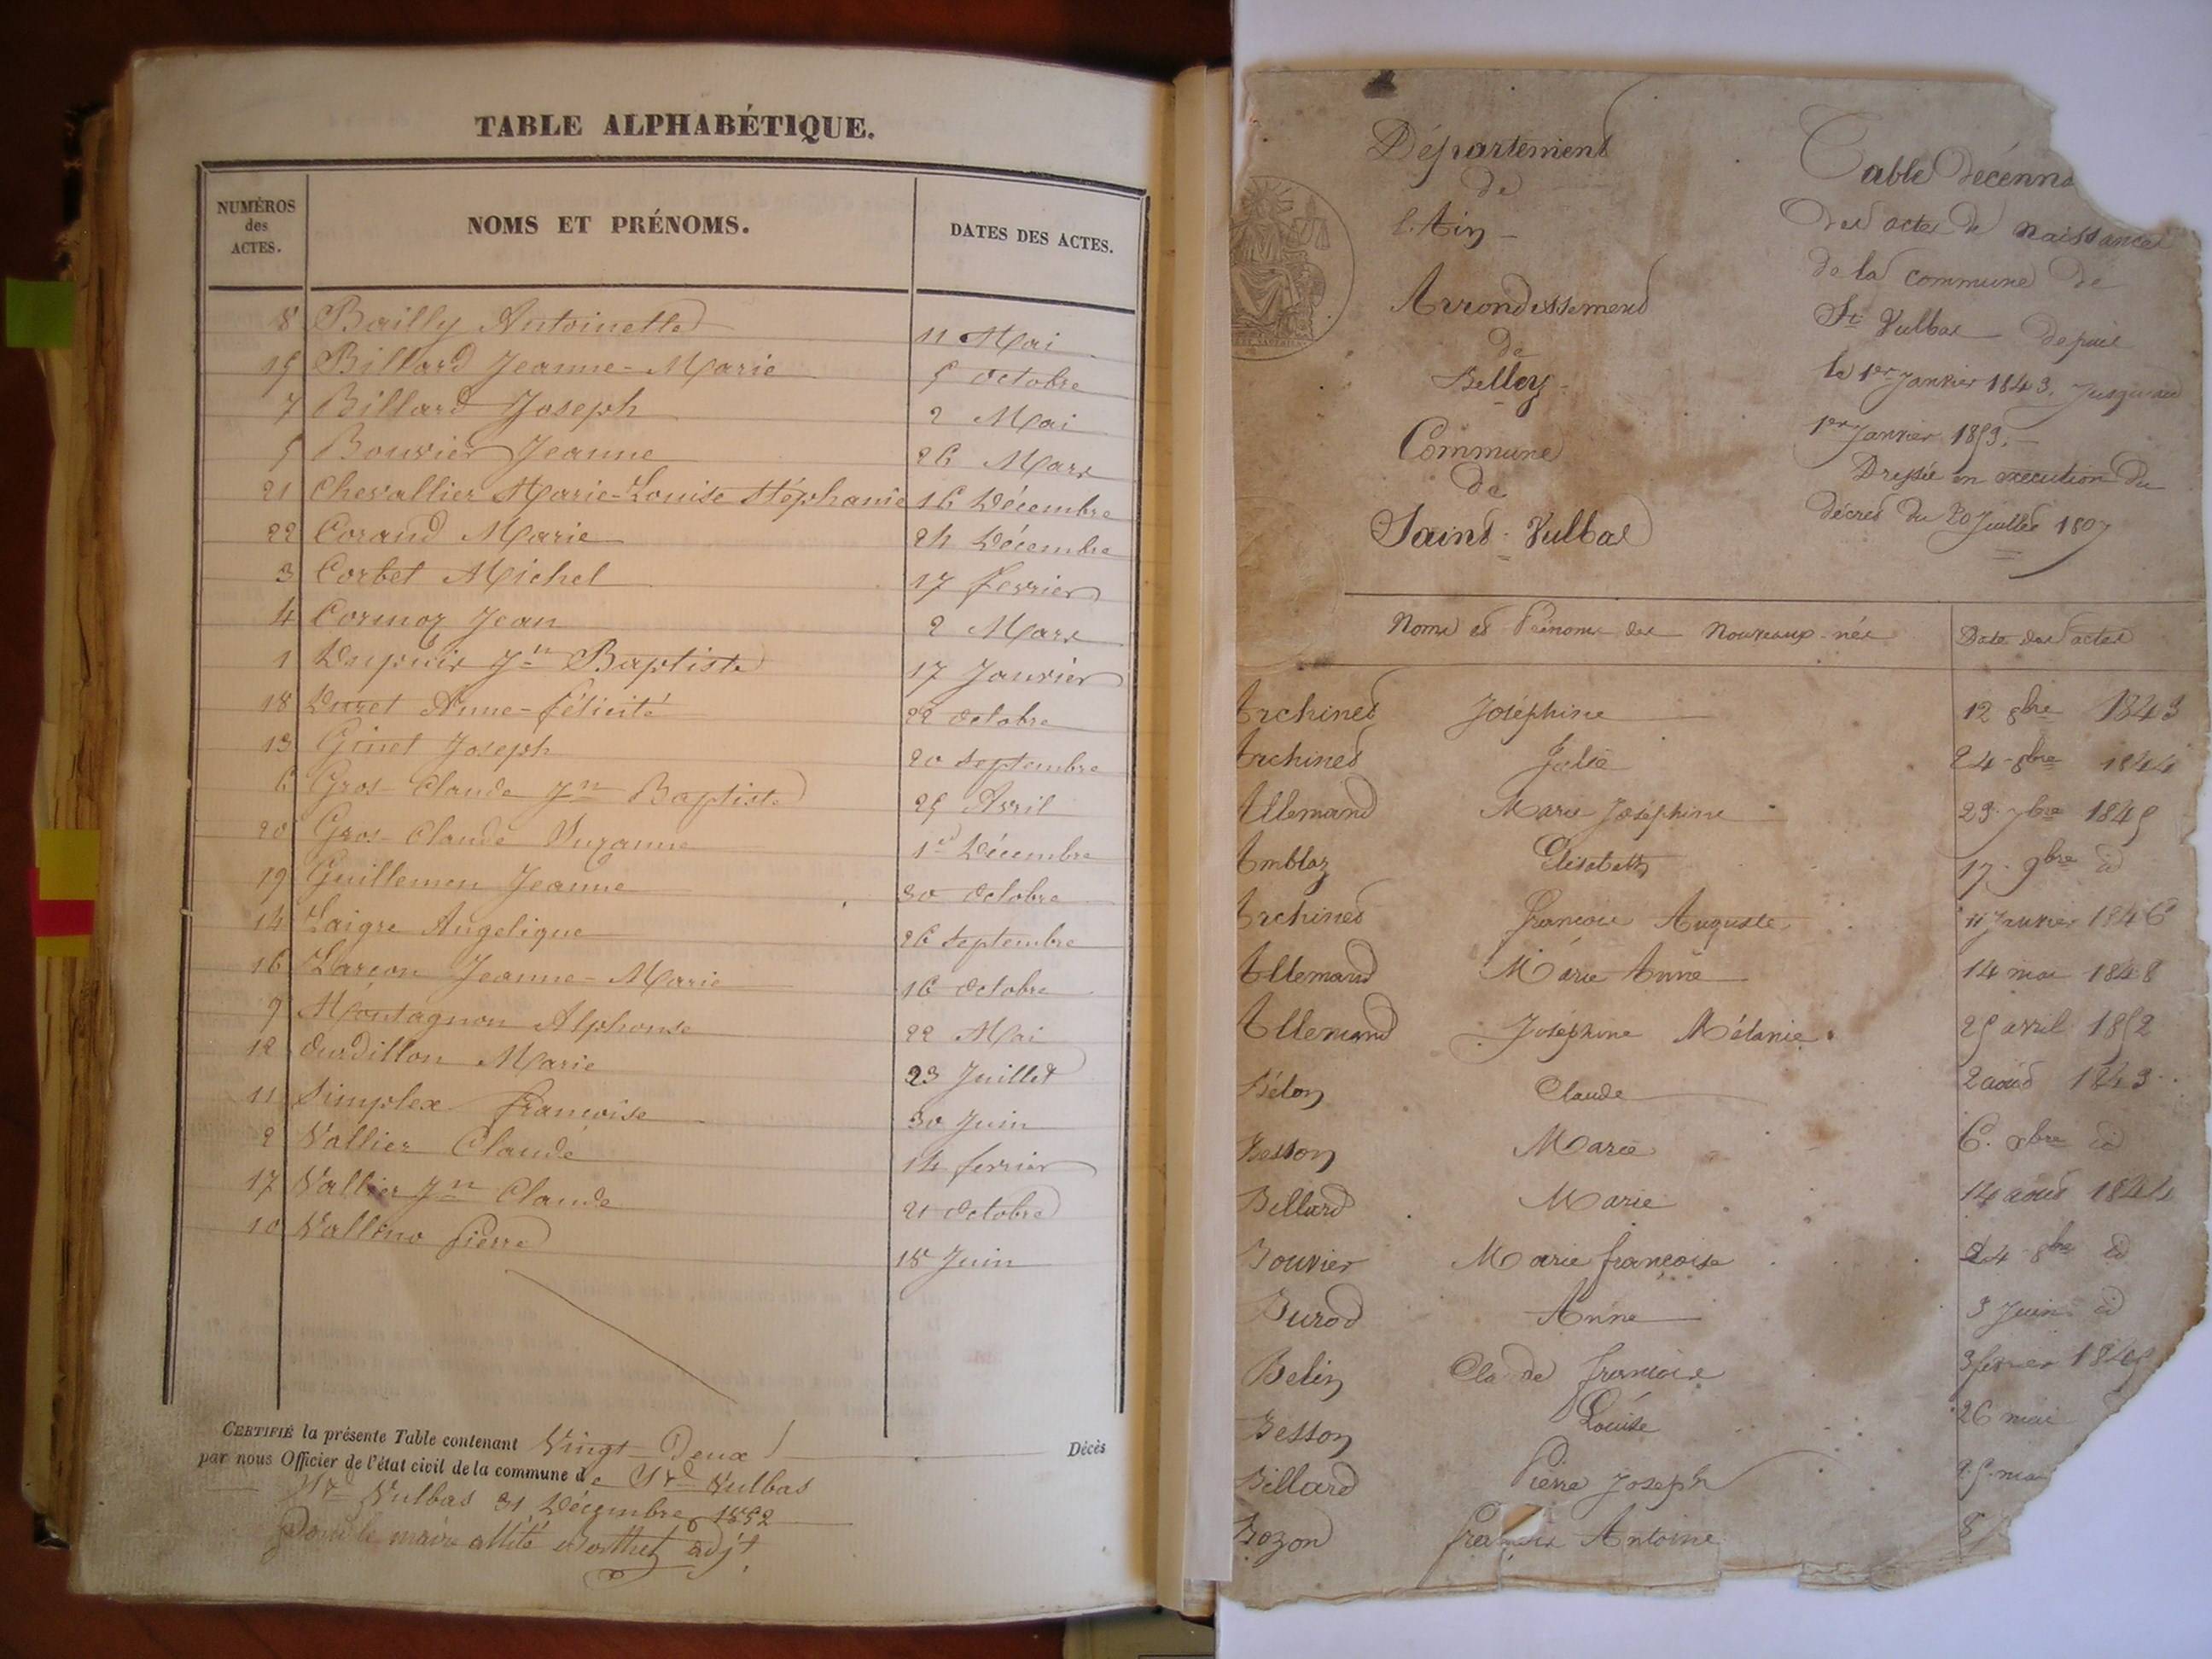 TABLE ALPHABÉTIQUE.
NUMÉROS des ACTES.
NOMS ET PRÉNOMS.
DATES DES ACTES.
8 Bailly Antoinette 11 Mai
15 Billard Jeanne-Marie 5 octobre
7 Billard Joseph 2 Mai
5 Bouvier Jeanne 26 Mars
21 Chevallier Marie-Louise Stéphanie 16 Décembre
22 Corand Marie 24 Décembre
3 Corbet Michel 17 fevrier
4 Cormoz Jean 2 Mars
1 Dupuis Jn Baptiste 17 Janvier
18 Duret Anne-félicité 22 octobre
13 Ginet Joseph 20 septembre
6 Gros-Claude Jn Baptiste 25 Avril
20 Gros-Claude Suzanne 1er Décembre
19 Guillemen Jeanne 30 octobre
14 Laigre Angelique 26 septembre
16 Larçon Jeanne-Marie 16 octobre
9 Montagnon Alphonse 22 Mai
12 Ourdillon Marie 23 Juillet
11 Simplex françoise 30 Juin
2 Vallier Claude 14 fevrier
17 Vallier Jn Claude 21 octobre
10 Vallino Pierre 18 Juin
CERTIFIÉ la présente Table contenant Vingt-Deux Décès
par nous Officier de l'état civil de la commune de St Vulbas
St Vulbas 31 Décembre 1852
Pour le maire Berthet adjt.
Département
de
l'Ain
Arrondissement
de
Belley
Commune
de
Saint-Vulbas
Table décenna
des actes de Naissances
de la commune de
St Vulbas depuis
le 1er Janvier 1843. Jusqu'au
1er Janvier 1853.
Dressée en execution du
décret du 20 Juillet 1807
Noms et Prénoms des Nouveaux-nés Date des actes
Archinet Joséphine 12 8bre 1843
Archinet Julie 24-8bre 1844
Allemand Marie Joséphine 29. 7bre 1845
Amblaz Elisabeth 17. 9bre id
Archinet françois Auguste 11 Janvier 1846
Allemand Marie Anne 14 mai 1848
Allemand Joséphine Mélanie 25 avril 1852
Béton Claude 2 aout 1843
Besson Marie 6. xbre id
Billard Marie 14 aout 1844
Bouvier Marie françoise 24-8bre id
Burod Anne 3 Juin id
Belin Claude françois 3 fevrier 1845
Besson Louise 26 mai
Billard Pierre Joseph 25 mai
Bozon françois Antoine